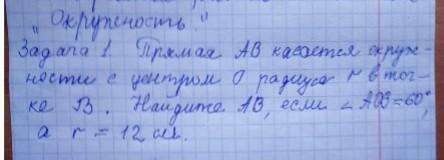 „Окружность."
Задача 1. Прямая АВ касается окруж-
ности с центром О радиуса r в точ-
ке В. Найдите АВ, если ∠ АОВ=60°,
а r = 12 см.